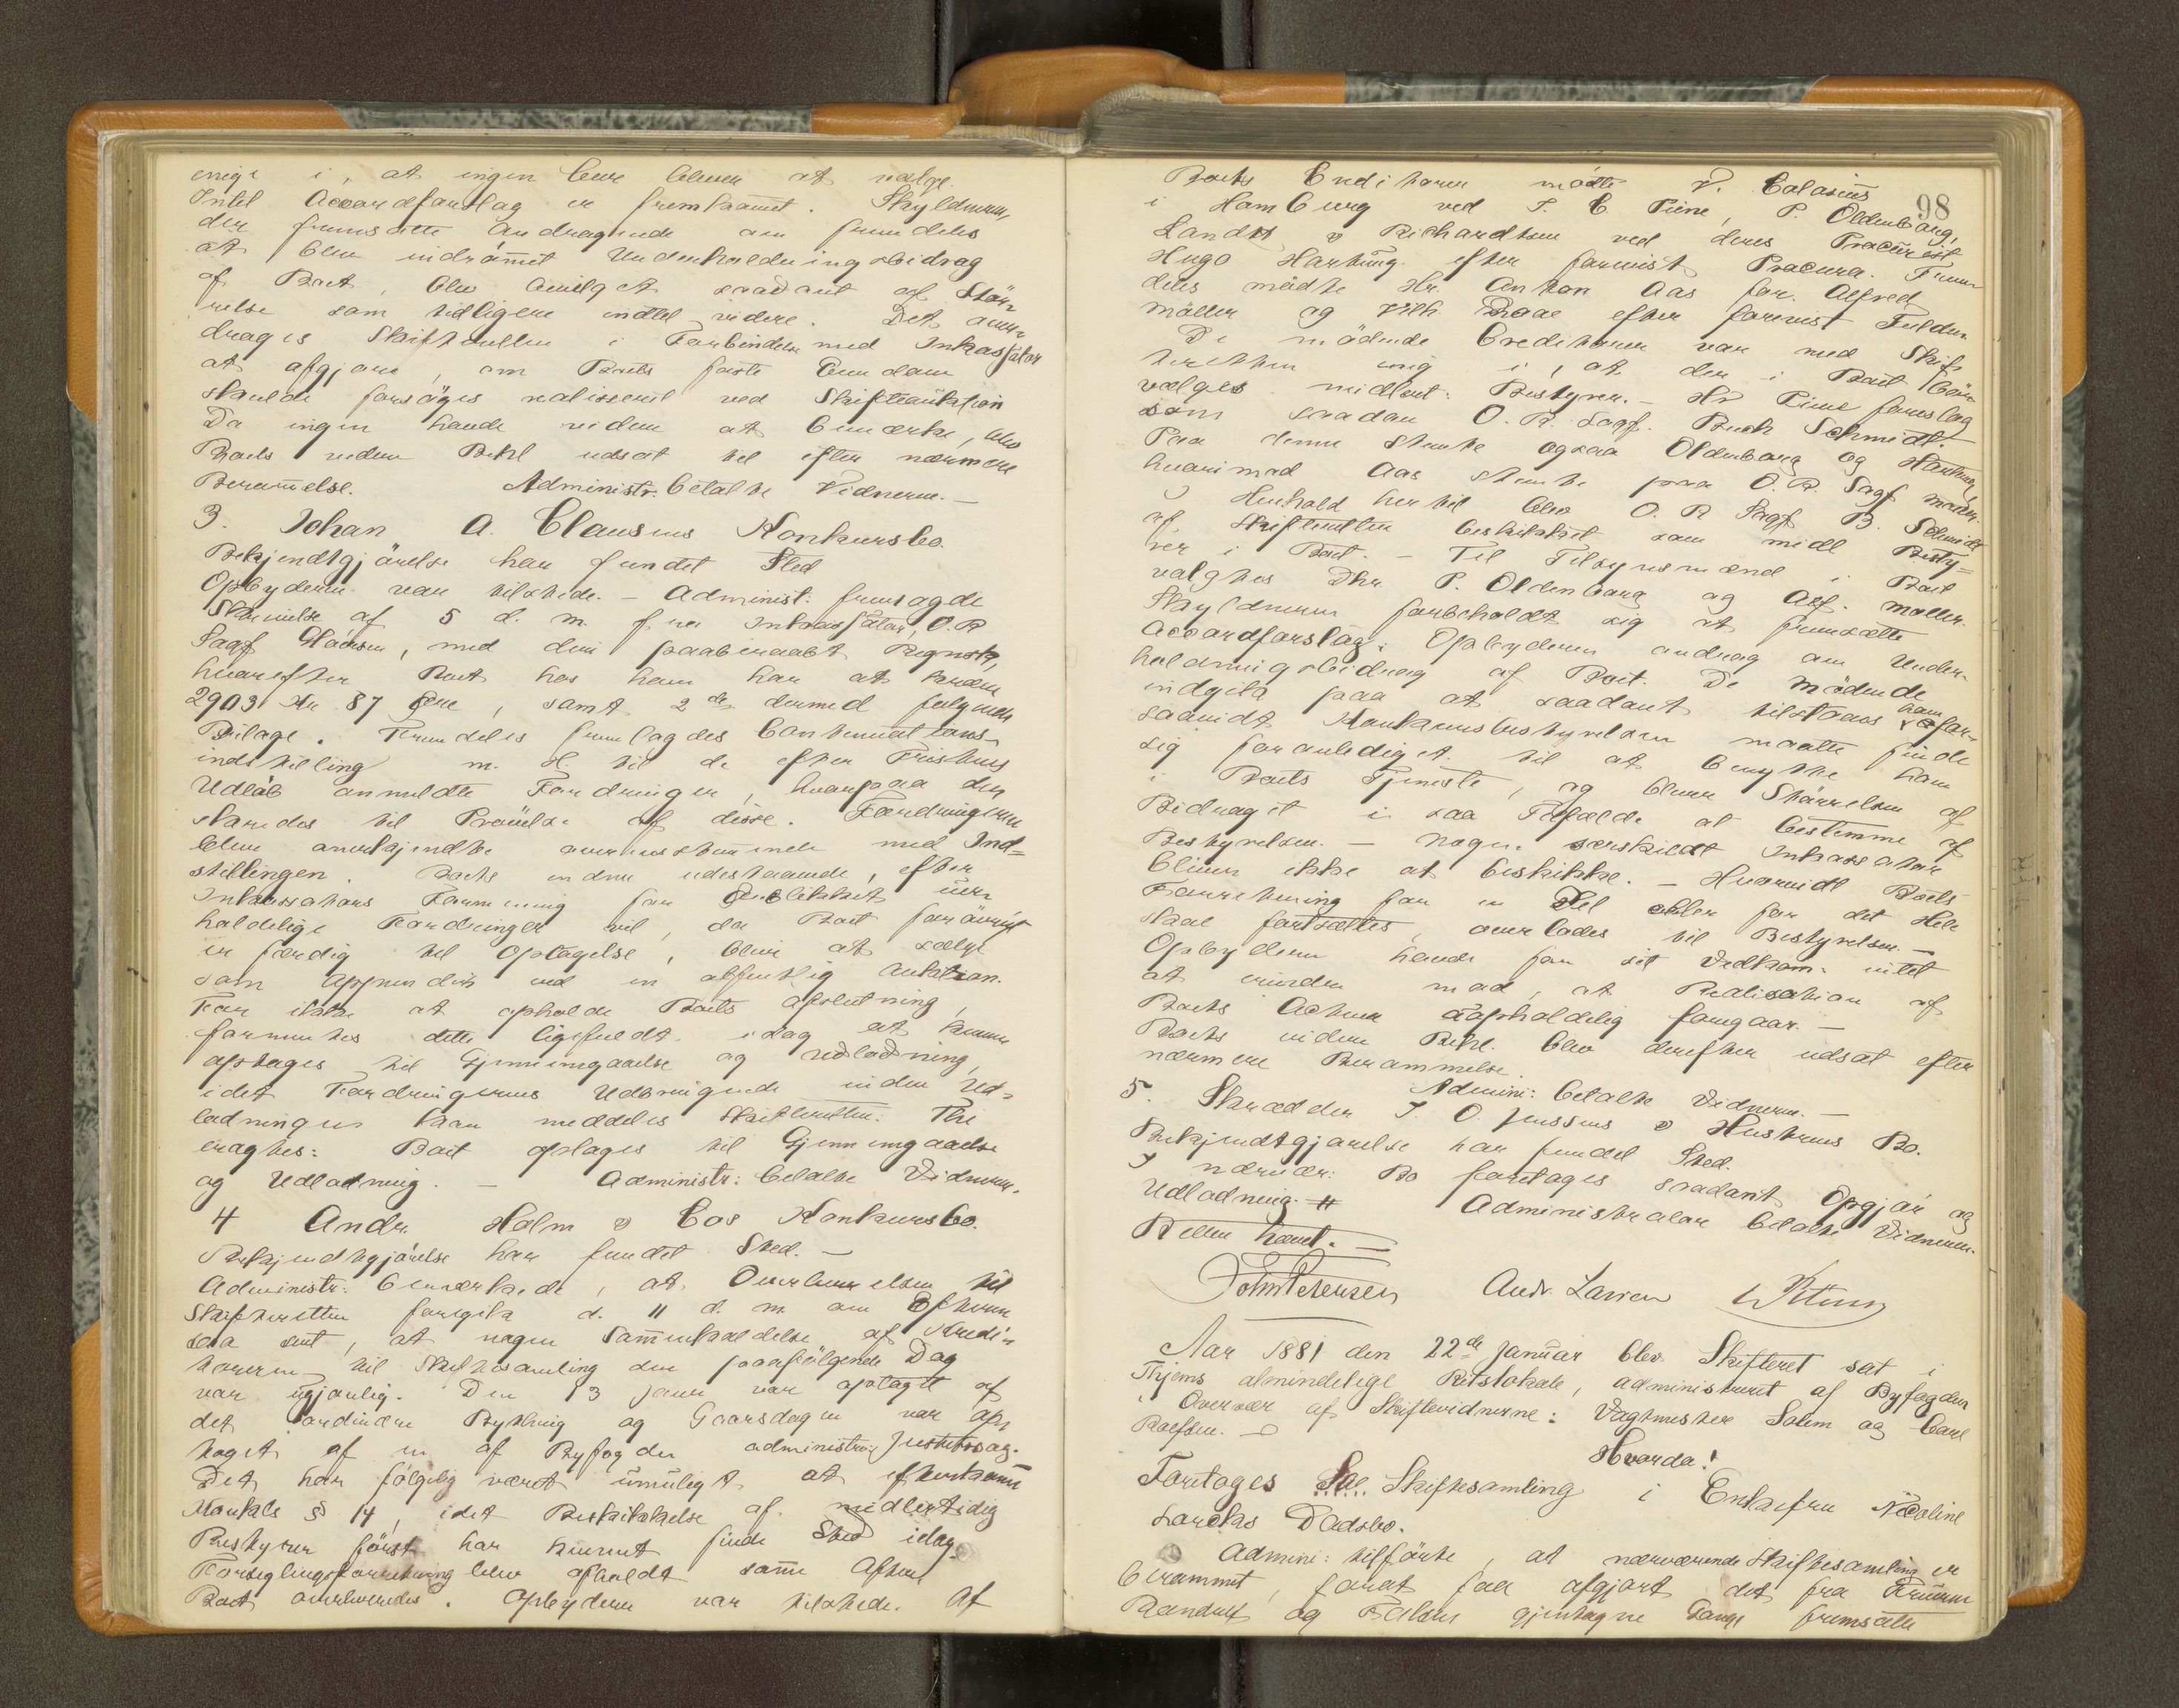 enige i, at ingen Cura bliver at vælge.
Intet Accordforslag er fremkommet. Skyldneren,
der fremsatte Andragende om fremdeles
at blive indrømmet Underholdningsbidrag
af Boet, blev bevilget saadant af Stør-
relse som tidligere indtil videre. Det over-
drages Skifteretten i Forbindelse med Inkassator
at afgjøre, om Boets faste Eiendom
skulde forsøges realiseret ved Skifteauktion
Da ingen havde videre at bemærke, blev
Boets videre Behl udsat til efter nærmere
Berammelse. Administr. betalte Vidnerne. —
3. Johan A. Clausens Konkursbo.
Bekjendtgjørelse har fundet Sted
Opbyderen var tilstede. — Administ: fremlagde
Skrivelse af 5 d. m. fra Inkassator, O. R
Sagf Claussen, med den paaberaabt Regnsk,
hvorefter Boet hos ham har at kræve
2903 Kr 87 Øre, samt 2 de dermed følgende
Bilage. Fremdeles fremlagdes
indstilling m. H. til de efter Fristens
Udløb anmeldte Fordringer, hvorpaa der
skredes til Prøvelse af disse. Fordringerne
bleve anerkjendte overensstemmende med Ind=
stillingen. Boets endnu udestaaende, efter
Inkassators Formening for Øieblikket uer-
holdelige Fordringer vil, da Boet forøvrigt
er færdig til Optagelse, blive at sælge
som Appendix ved en offentlig Auktion.
For ikke at opholde Boets Afslutning,
formentes dette ligefuldt idag at kunne
optages til Gjennemgaaelse og Udlodning,
idet Fordringernes Udbringende inden Ud-
lodningen kan meddeles Skifteretten. Thi
eragtes: Boet optages til Gjennemgaaelse
og Udlodning. — Administr: betalte Vidnerne.
4 Andr. Holm & Cos Konkursbo.
Bekjendtgjørelse har fundet Sted. —
Administr: bemærkede, at Overleverelsen til
Skifteretten foregik d. 11 d. m. om Eftern
saa sent, at nogen Sammenkaldelse af Kredi-
torerne til Skiftesamling den paafølgende Dag
var ugjørlig. Den 13 Janr var optaget af
det ordinære Bything og Gaarsdagen var op-
taget af en af Byfogden administrer Justitssag.
Det har følgelig været umuligt at efterkomme
Konkls § 14, idet Beskikkelse af midlertidig
Bestyrer først har kunnet finde Sted idag.
Forseglingsforretning blev afholdt samme Aften
Boet overleveredes. Opbyderen var tilstede. Af
98
Boets Creditorer mødte V. Calasius
i Hamburg ved J. C. Piene, P. Oldenborg,
Landt & Richardtsen ved deres Procurist
Hugo Hartung efter forevist Procura. Frem-
deles mødte Hr. Anton Aas for Alfred
Møller og Vilh. Braae efter forevist Fuldm
De mødende Creditorer var med Skif-
teretten enig i, at der i Boet bør
vælges midlert. Bestyrer. — Hr Piene foreslog
som saadan O. R. Sagf. Buch Schmidt.
Paa denne stemte ogsaa Oldenborg og Hartung,
hvorimod Aas stemte paa O. R. Sagf
I Henhold hertil blev O. R Sagf B. Schmidt
af Skifteretten beskikket som midl Besty=
rer i Boet. — Til Tilsynsmænd i Boet
valgtes Dhr P. Oldenborg og Alf. Møller.
Skyldneren forbeholdt sig at fremsætte
Accordforslag. Opbyderen androg om Under-
holdningsbidrag af Boet. De mødende
indgik paa at saadant tilstaaes ham for-
saavidt Konkursbestyrelsen maatte finde
sig foranlediget til at benytte ham
i Boets Tjeneste, og bliver Størrelsen af
Bidraget i saa Tilfælde at bestemme af
Bestyrelsen. — Nogen særskildt Inkassator
bliver ikke at beskikke. — Hvorvidt Boets
Forretning for en Del eller for det Hele
skal fortsættes, overlades til Bestyrelsen. —
Opbyderen havde for sit Vedkom: intet
at erindre mod, at Realisation af
Boets Activa uopholdelig foregaar. —
Boets videre Behl. blev derefter udsat efter
nærmere Berammelse.
Admini: betalte Vidnerne. —
5. Skrædder J. O. Jenssens & Hustrues Bo.
Bekjendtgjørelse har fundet Sted.
I nærvær: Bo foretages saadant Opgjør og
Udlodning. Administrator betalte Vidnerne.
Retten hævet. —
John Petersen Andr. Larsen
Aar 1881 den 22de Januar blev Skifteret sat i
Thjems almindelige Retslokale, administreret af Byfogden
i Overvær af Skiftevidnerne: Vagtmester Solem og Carl
Rolfsen. —
Hvorda!
Foretages Skiftesamling i Enkefru Nicoline
Lorcks Dødsbo.
Admini: tilførte, at nærværende Skiftesamling er
berammet, forat faa afgjort det fra Fruerne
og gjentagne Gange fremsatte